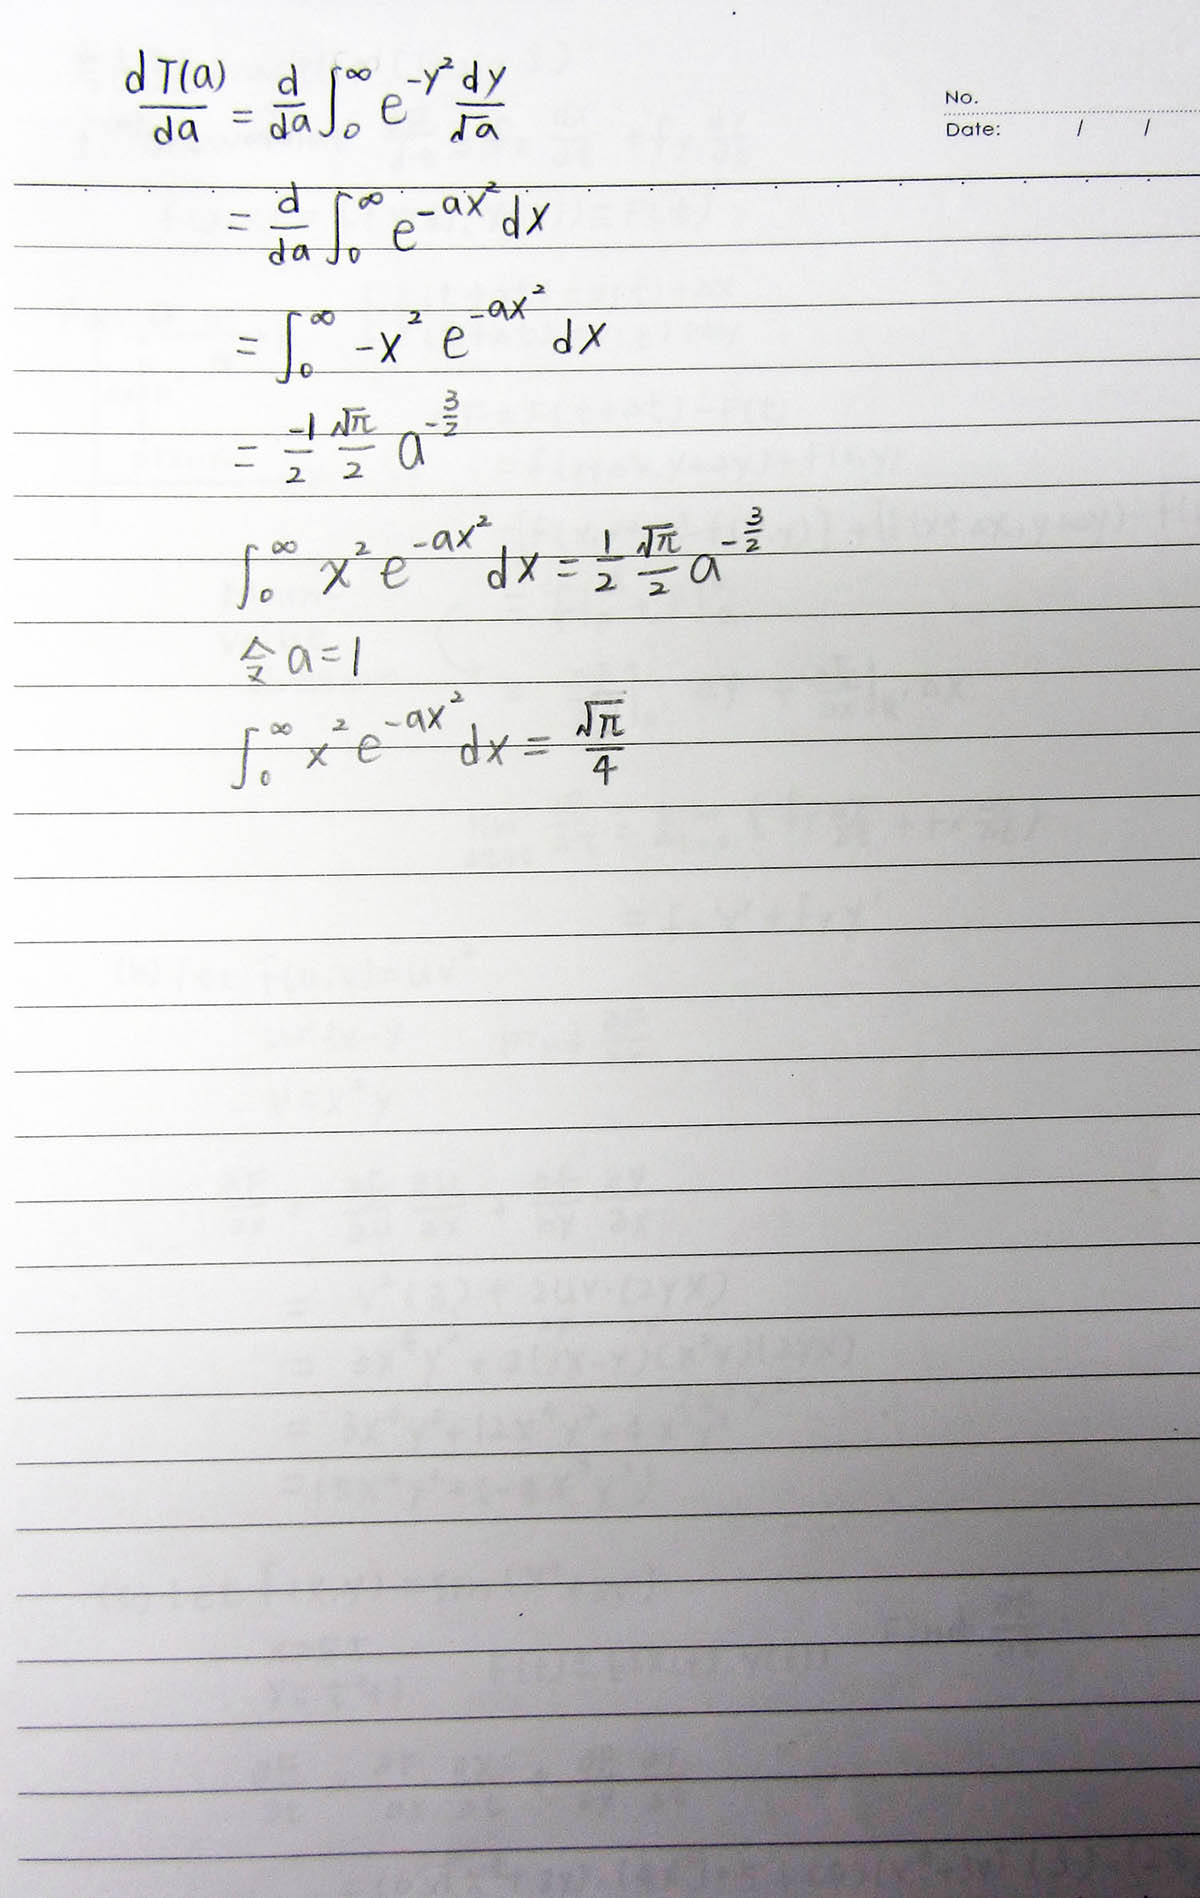 No.
Date: / /
dT(a)/da = d/da ∫₀^∞ e^(-y²) dy/√a
= d/da ∫₀^∞ e^(-ax²) dx
= ∫₀^∞ -x² e^(-ax²) dx
= -1/2 √π/2 a^(-3/2)
∫₀^∞ x² e^(-ax²) dx = 1/2 √π/2 a^(-3/2)
令 a = 1
∫₀^∞ x² e^(-ax²) dx = √π/4